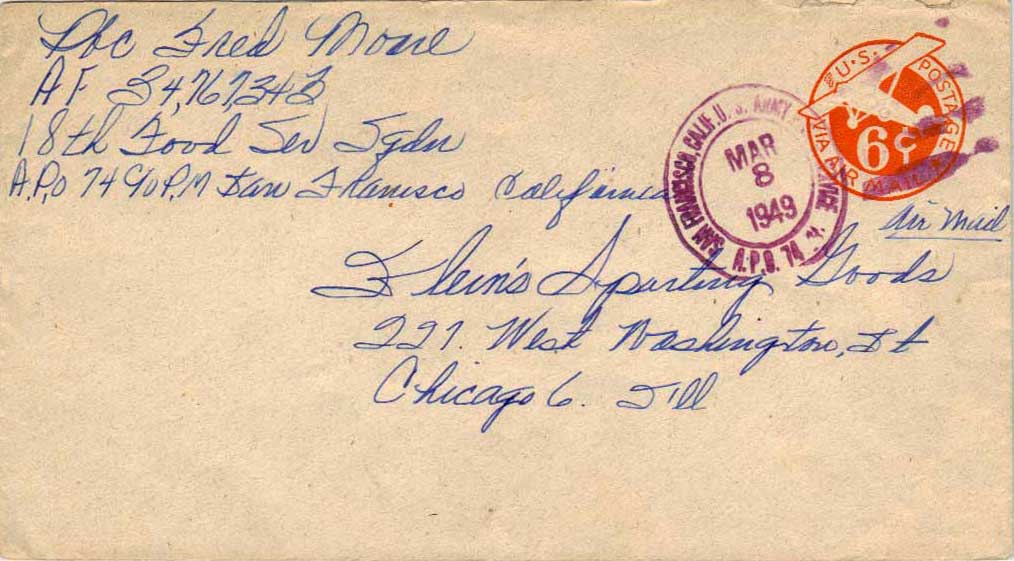 Pfc Fred Moore
AF 34,767,343
18th Food Ser Sqdn
A.P.O 74 C/o P.M San Francisco California
U.S. POSTAGE
VIA AIR MAIL
6¢
SAN FRANCISCO, CALIF. U.S. ARMY
MAR
8
1949
A.P.O. 74
Air Mail
Klein's Sporting Goods
227. West Washington, St
Chicago 6. Ill